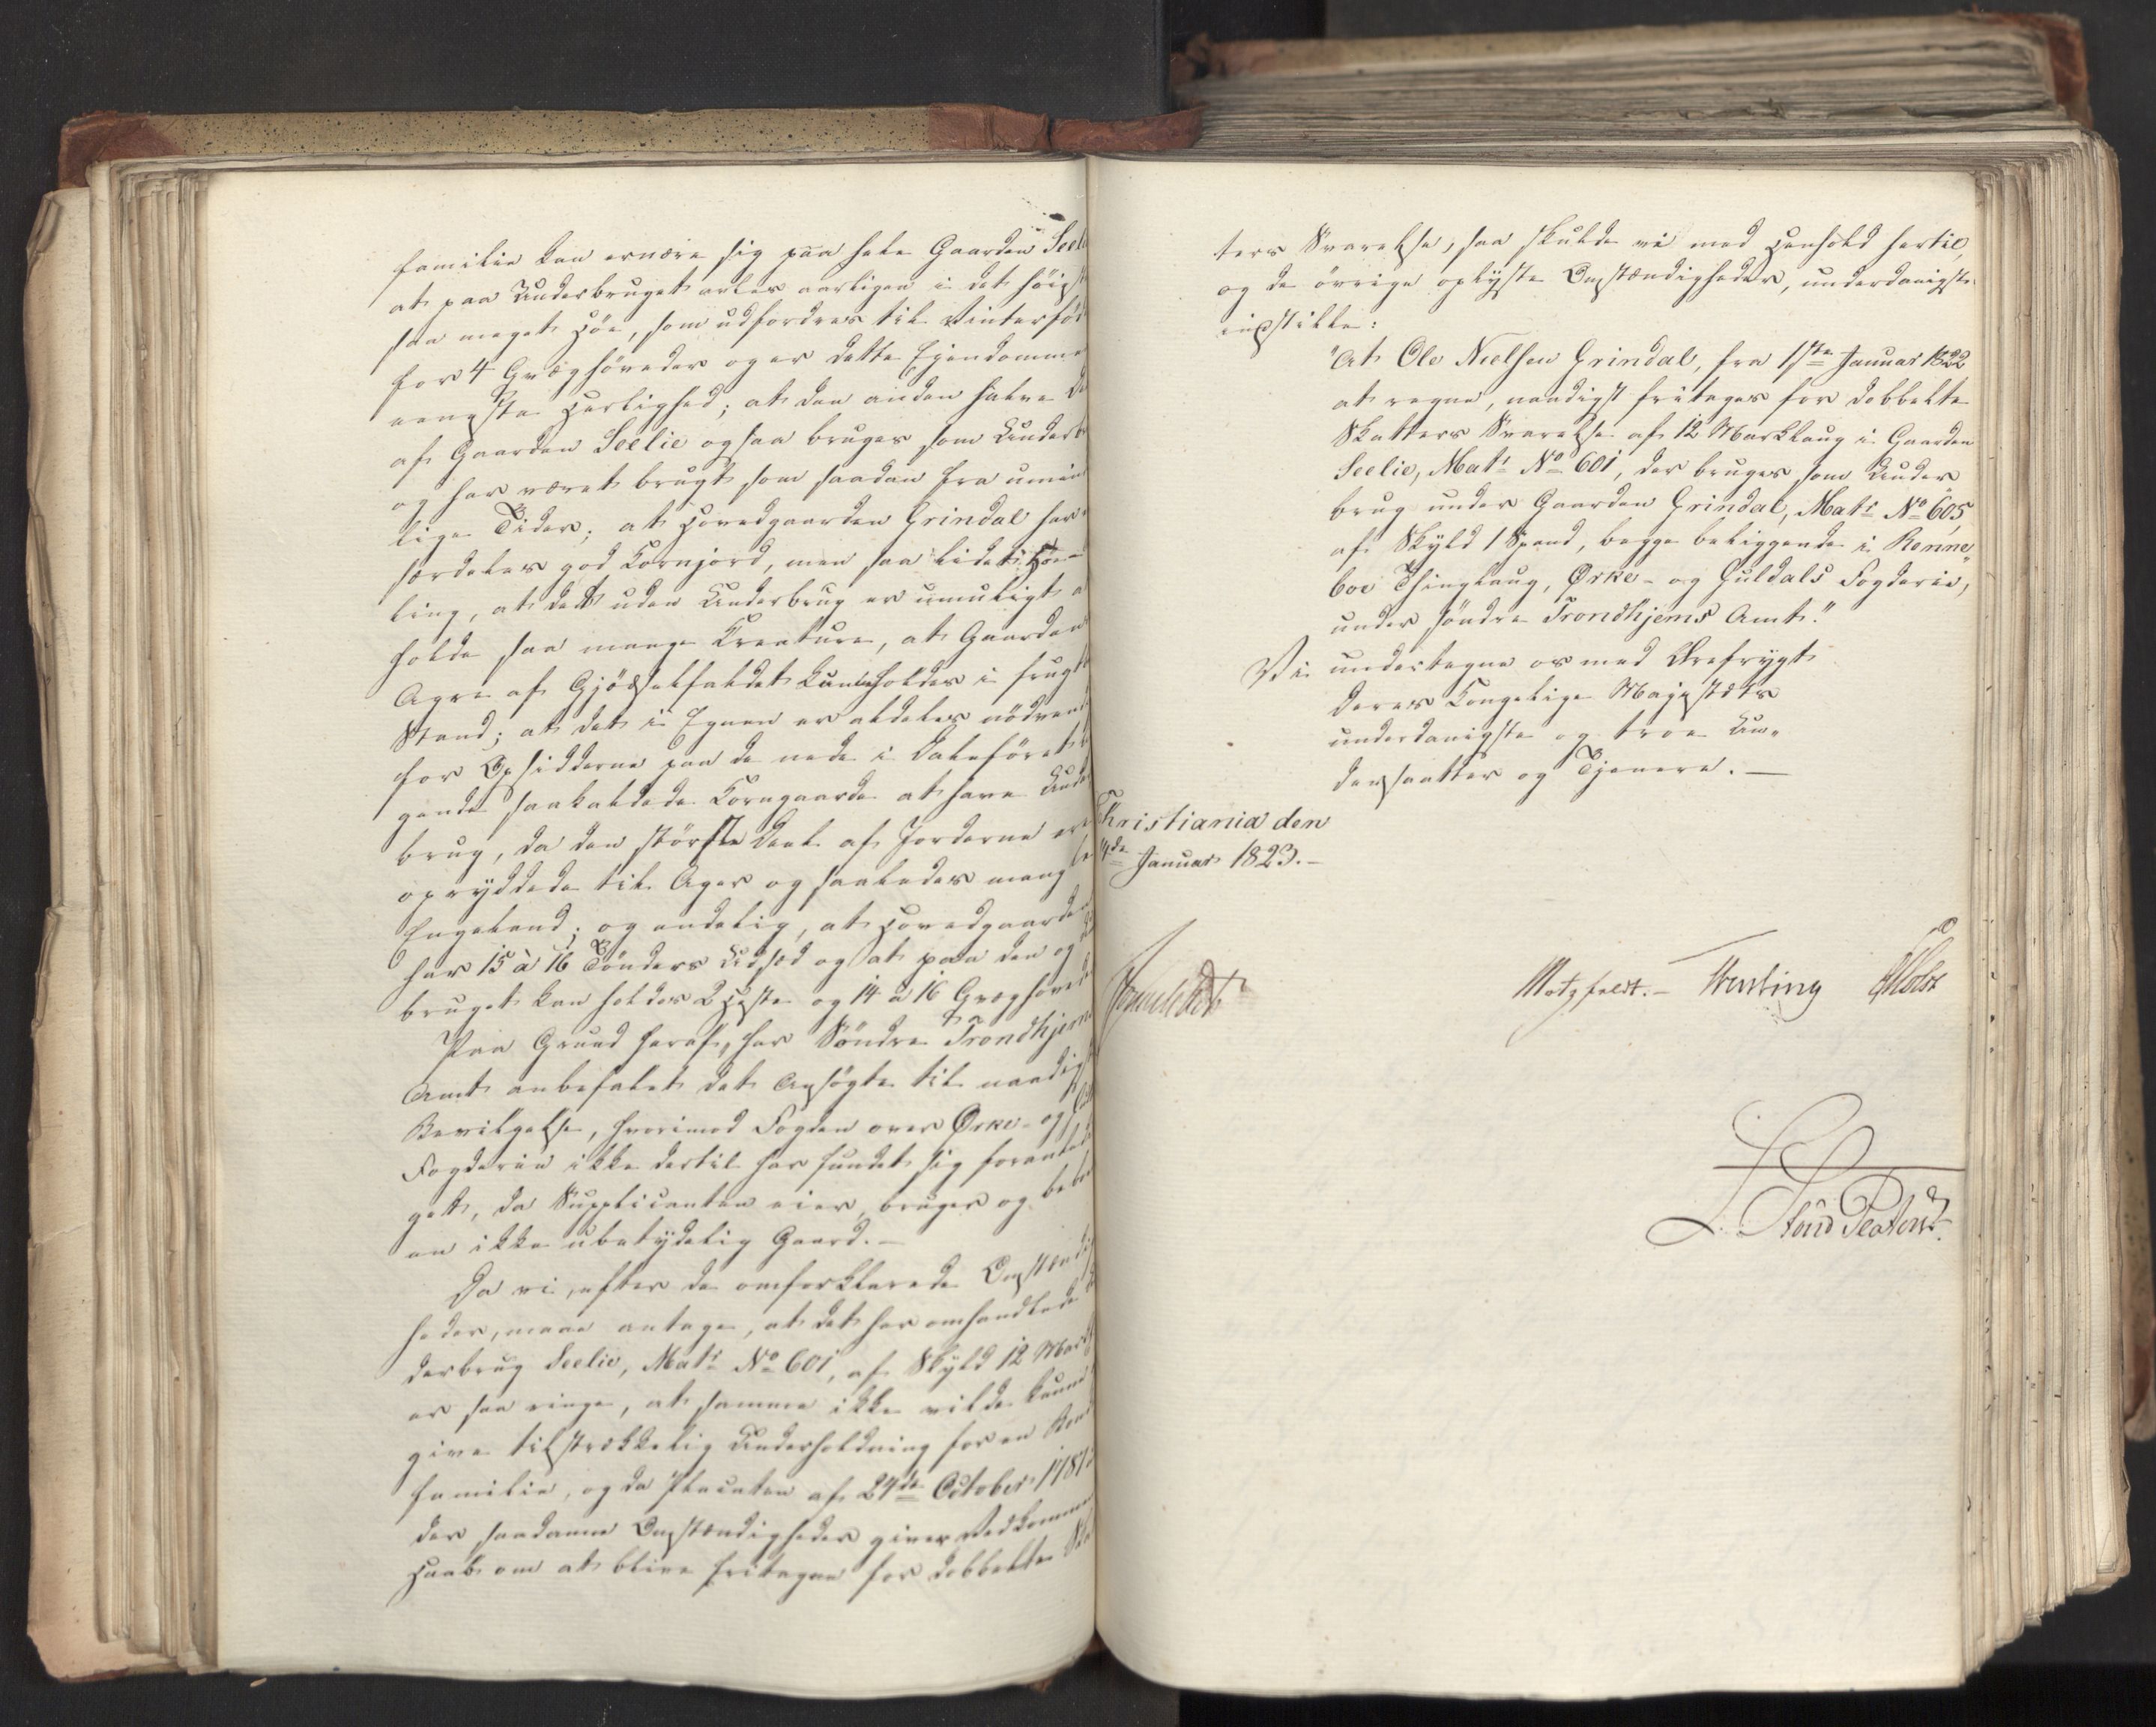 familie kan ernære sig paa hele Gaarden Seel
at paa Underbruget avles aarligen i det høist
saa meget Høe, som udfordres til Vinterfød
for 4 Qvæghøveder og er dette Ejendomme
eeneste Herlighed; at den anden halve De
af Gaarden Seelie ogsaa bruges som Underb
og har været brugt som saadan fra umin
lige Tider; at Hovedgaarden Grindal har
særdeles god Kornjord, men saa lidet Høe-
ling, at det uden Underbrug er umuligt a
holde saa mange Creature, at Gaarden
Agre af Gjødselfaldet kunde holdes i frugt
Stand; at det i Egnen er aldeles nødvend
for Opsidderne paa de nede i Daleføret
gende saakaldede Korngaarde at have Under
brug, da den største Deel af Jorderne er
opryddede til Ager og saaledes mangle
Engeland; og endelig, at Hovedgaarden
har 15 à 16 Tønders Udsæd og at paa den og
bruget kan holdes 2 Heste og 14 a 16 Qvæghøved
Paa Grund heraf, har Søndre Trondhjems
Amt anbefalet det Ansøgte til naadigst
Bevilgelse, hvorimod Fogden over Ørke- og
Fogderie ikke dertil har fundet sig foranled
get, da Supplicanten eier, bruger og beboe
en ikke ubetydelig Gaard.-
Da vi, efter de omforklarede Omstændig
heder, maae antage, at det her omhandlede
derbrug Seelie, Matr No 601, af Skyld 12 Mark
er saa ringe, at samme ikke vilde kunne
give tilstrækkelig Underholdning for en Bonde
familie, og da Placaten af 24de October 1781
der saadanne Omstændigheder giver Vedkomme
Haab om at blive fritagen for dobbelte Skat
ters Svarelse, saa skulde vi med Henhold hertil,
og de øvrige oplyste Omstændigheder, underdanigst
indstille:
"At Ole Nielsen Grindal, fra 1ste Januar 1822
at regne, naadigst fritages for dobbelte
Skatters Svarelse af 12 Marklaug i Gaarden
Seelie, Matr No 601, der bruges som Under
brug under Gaarden Grindal, Matr No 605,
af Skyld 1 Spand, begge beliggende i Renne„
boe Thinglaug, Ørke- og Guldals Fogderie,
under søndre Trondhjems Amt."
Vi undertegne os med Ærefrygt
Deres Kongelige Majestæts
underdanigste og troe Un„
dersaatter og Tjenere. —
Christiania den
de Januar 1823.-
Motzfeldt.- Holst